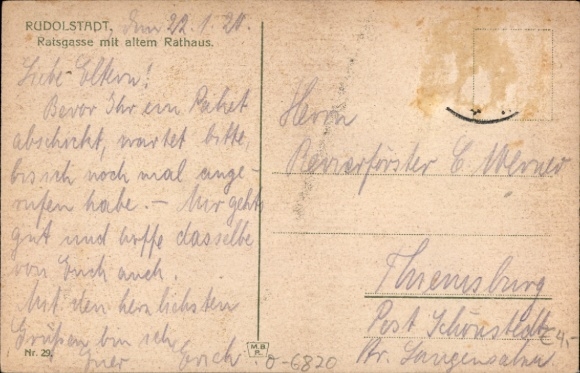 RUDOLSTADT. den 22.1.21.
Ratsgasse mit altem Rathaus.
Liebe Eltern!
Bevor Ihr ein Paket
abschickt, wartet bitte,
bis ich noch mal ange-
rufen habe. — Mir geht's
gut und hoffe dasselbe
von Euch auch.
Mit den herzlichsten
Grüßen bin ich
Euer Erich.
Nr. 29.
M.B.R.
o-6820
Herrn
Revierförster E. Werner
Thiemsburg
Post Schönstedt
Kr. Langensalza
€ 4,-